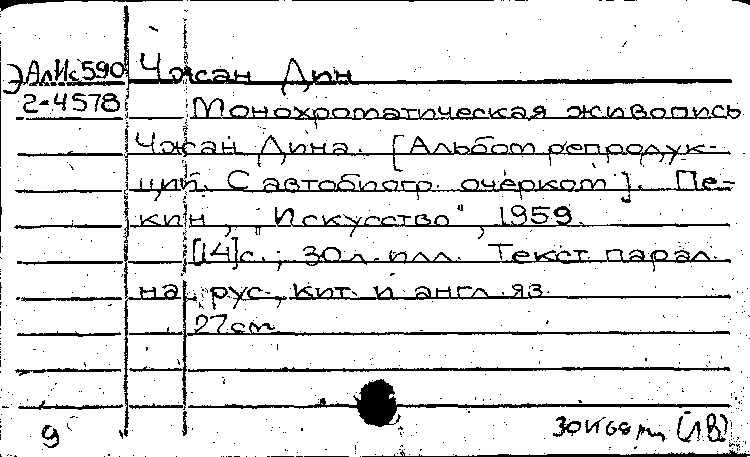 ЭАлИс590 Чжан Дин
2-4578 Монохроматическая живопись
Чжан Дина. [Альбом репродук-
ций. С автобиогр. очерком]. Пе-
кин, "Искусство", 1959.
[14]с.; 30л. илл. Текст парал.
на рус., кит. и англ. яз.
27см
9 (1В)